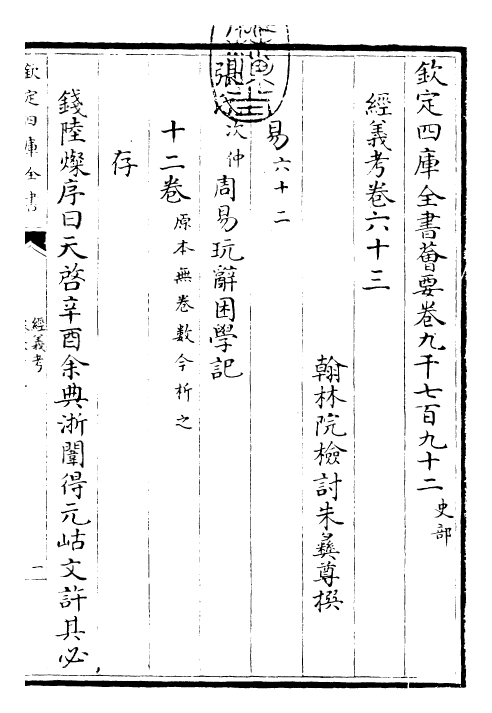 欽定四庫全書薈要卷九千七百九十二 史部
經義考卷六十三
翰林院檢討朱彝尊撰
易六十二
張氏次仲周易玩辭困學記
十二卷原本無卷數今析之
存
錢陸燦序曰天啓辛酉余典浙闈得元岵文許其必
欽定四庫全書
經義考